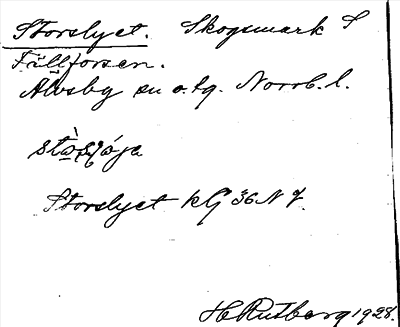 Storslyet. Skogsmark S
Fällforsen.
Älvsby sn o. tg. Norrb. l.
Storslyet kG 36 N 7.
H Rutberg 1928.